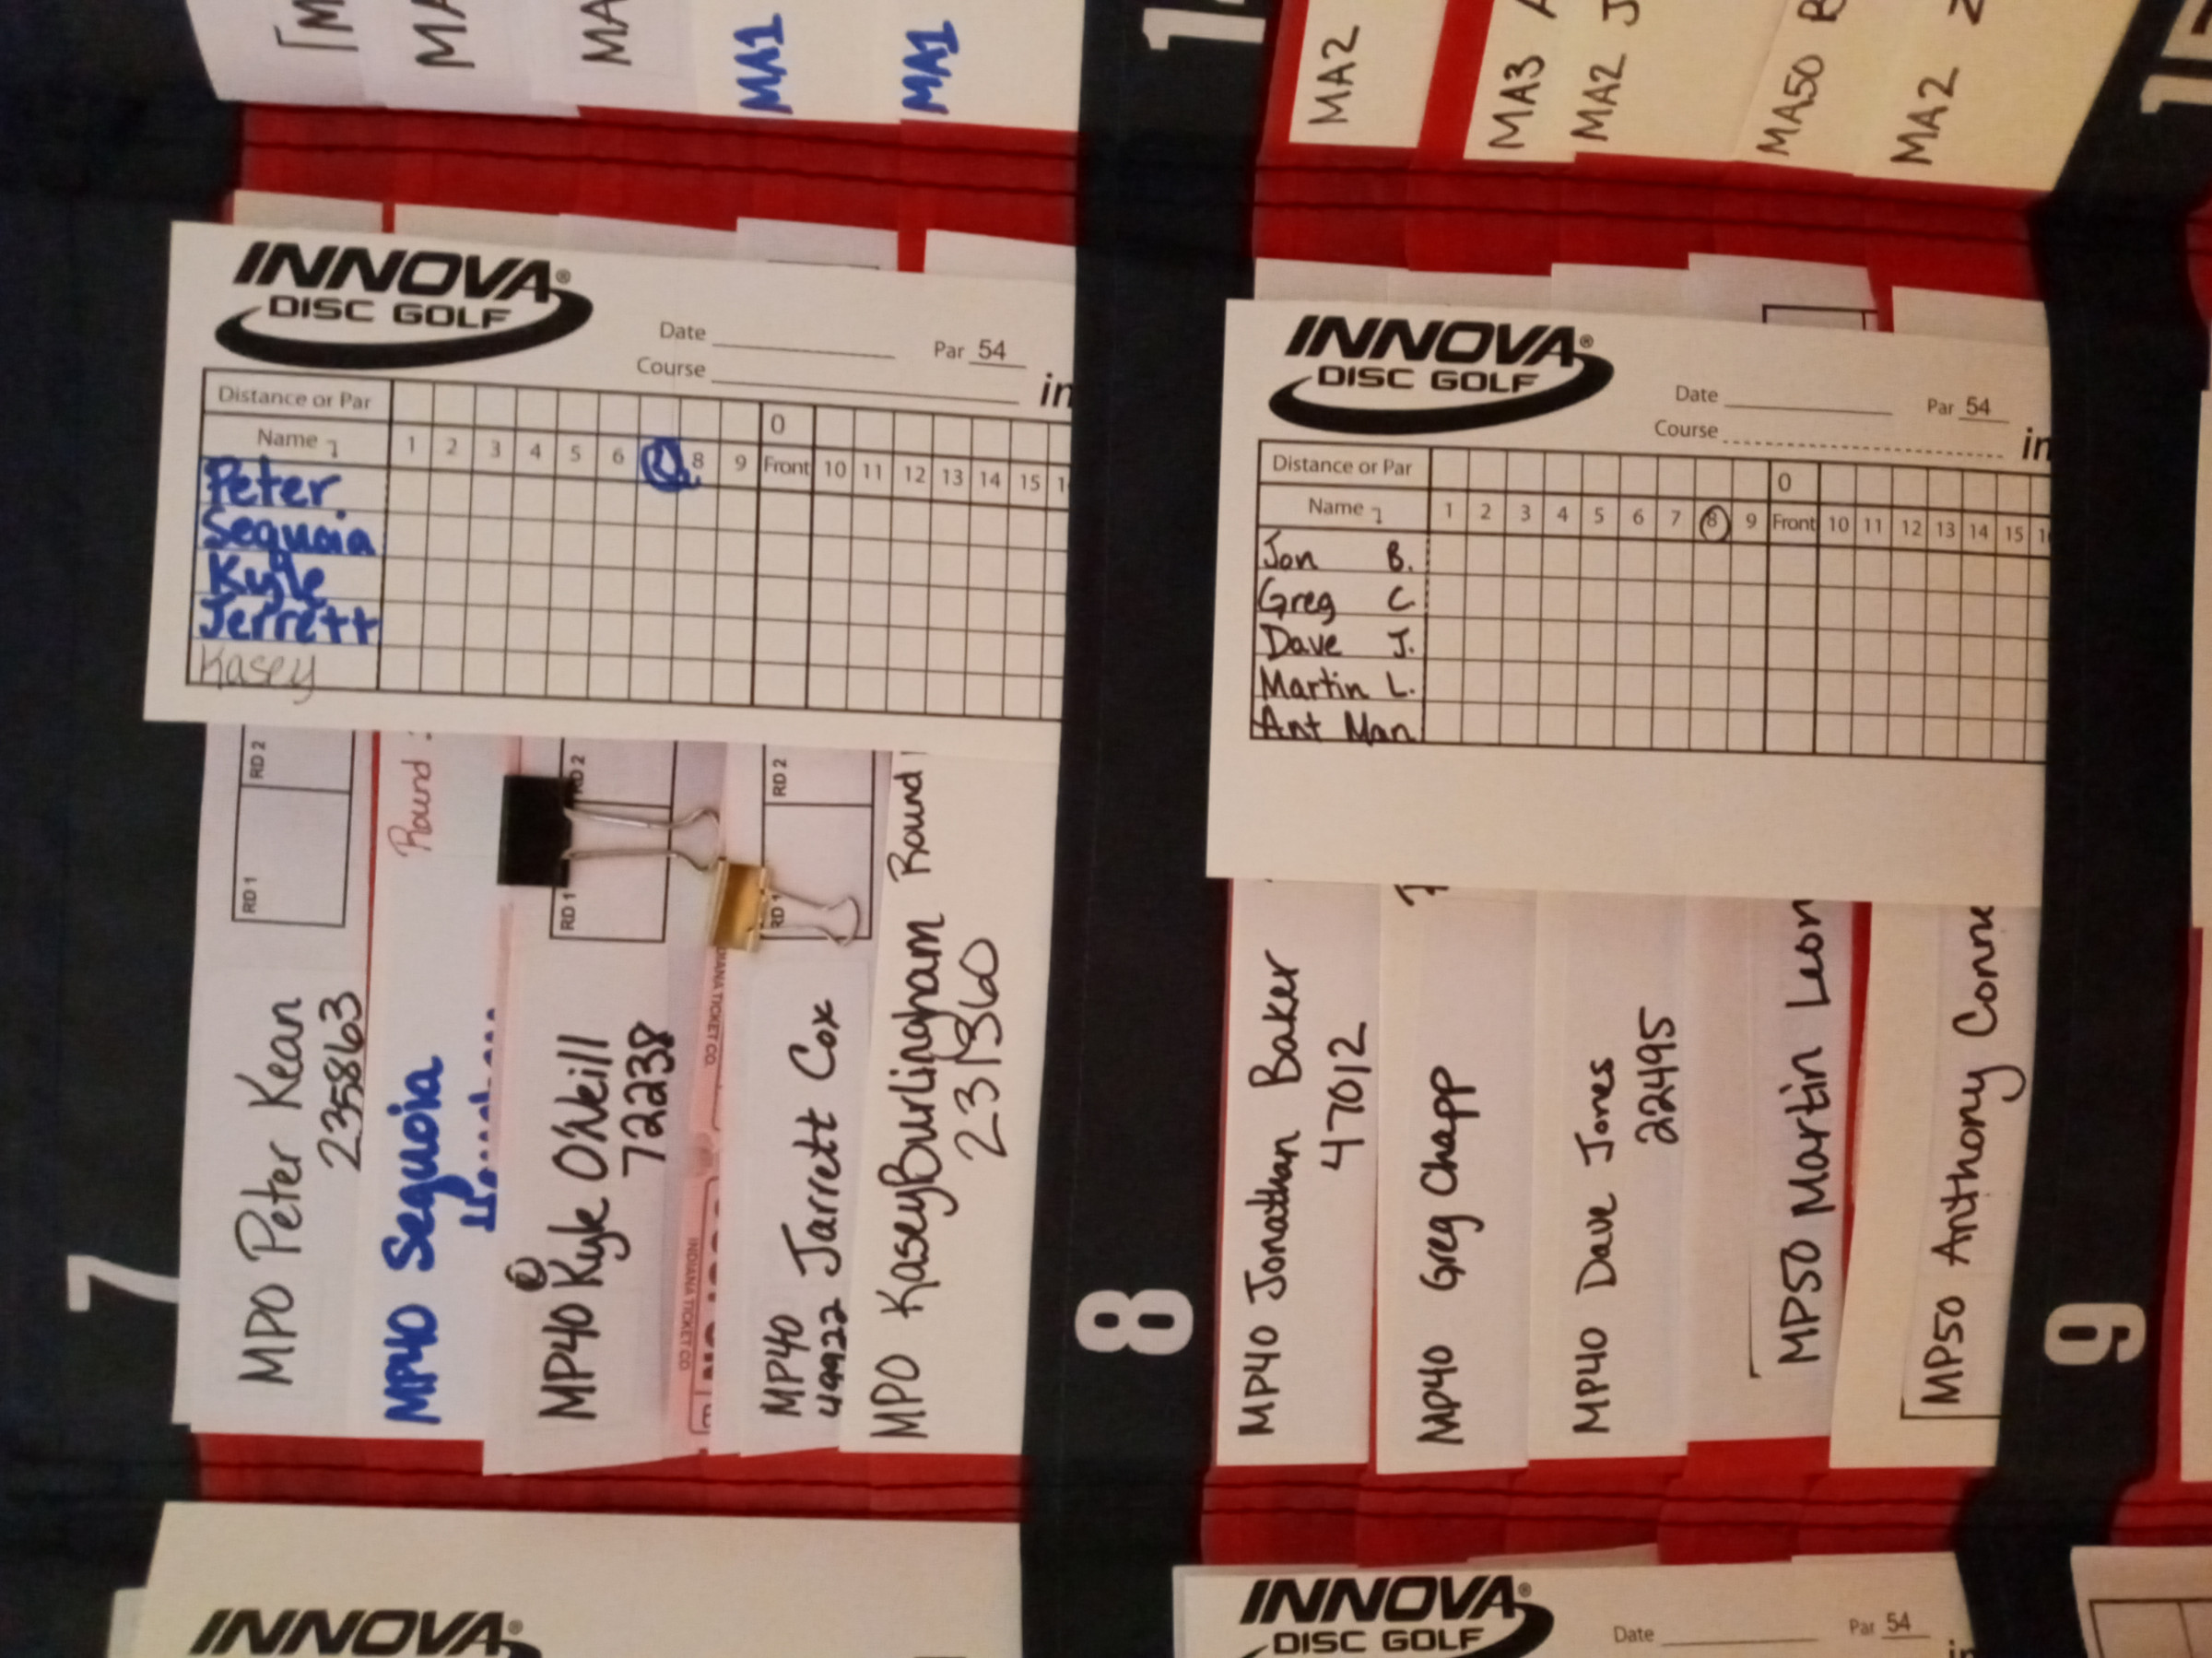 MA1
MA1
MA2
MA3
MA2 J
MA50
MA2
INNOVA®
DISC GOLF
Date
Par 54
Course
in
Distance or Par
0
Name 1 2 3 4 5 6 8 9 Front 10 11 12 13 14 15 1
Peter
Sequoia
Kyle
Jerrett
Kasey
7
RD 1 RD 2
MPO Peter Kean
235863
Round
MP40 Sequoia
RD 1 RD 2
MP40 Kyle O'Neill
72238
INDIANA TICKET CO.
INDIANA TICKET CO.
RD 1 RD 2
MP40 Jarrett Cox
49922
MPO Kasey Burlingham Round
231360
INNOVA®
DISC GOLF
Date
Par 54
Course
in
Distance or Par
0
Name 1 2 3 4 5 6 7 8 9 Front 10 11 12 13 14 15 1
Jon B.
Greg C.
Dave J.
Martin L.
Ant Man
8
MP40 Jonathan Baker
47012
MP40 Greg Chapp
MP40 Dave Jones
22495
MP50 Martin Leon
MP50 Anthony Conne
9
INNOVA®
INNOVA®
DISC GOLF
Date
Par 54
in